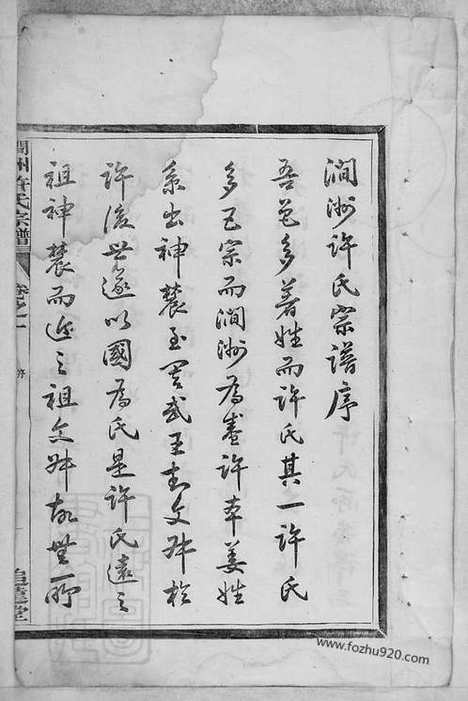 澗洲許氏宗譜序
吾邑多著姓而許氏其一許氏
多巨宗而澗洲為蓋許本姜姓
系出神農至周武王封文叔於
許後世遂以國為氏是許氏遠之
祖神農而近之祖文叔故無一所
澗洲許氏宗譜
卷之一
序
追遠堂
www.fozhu920.com